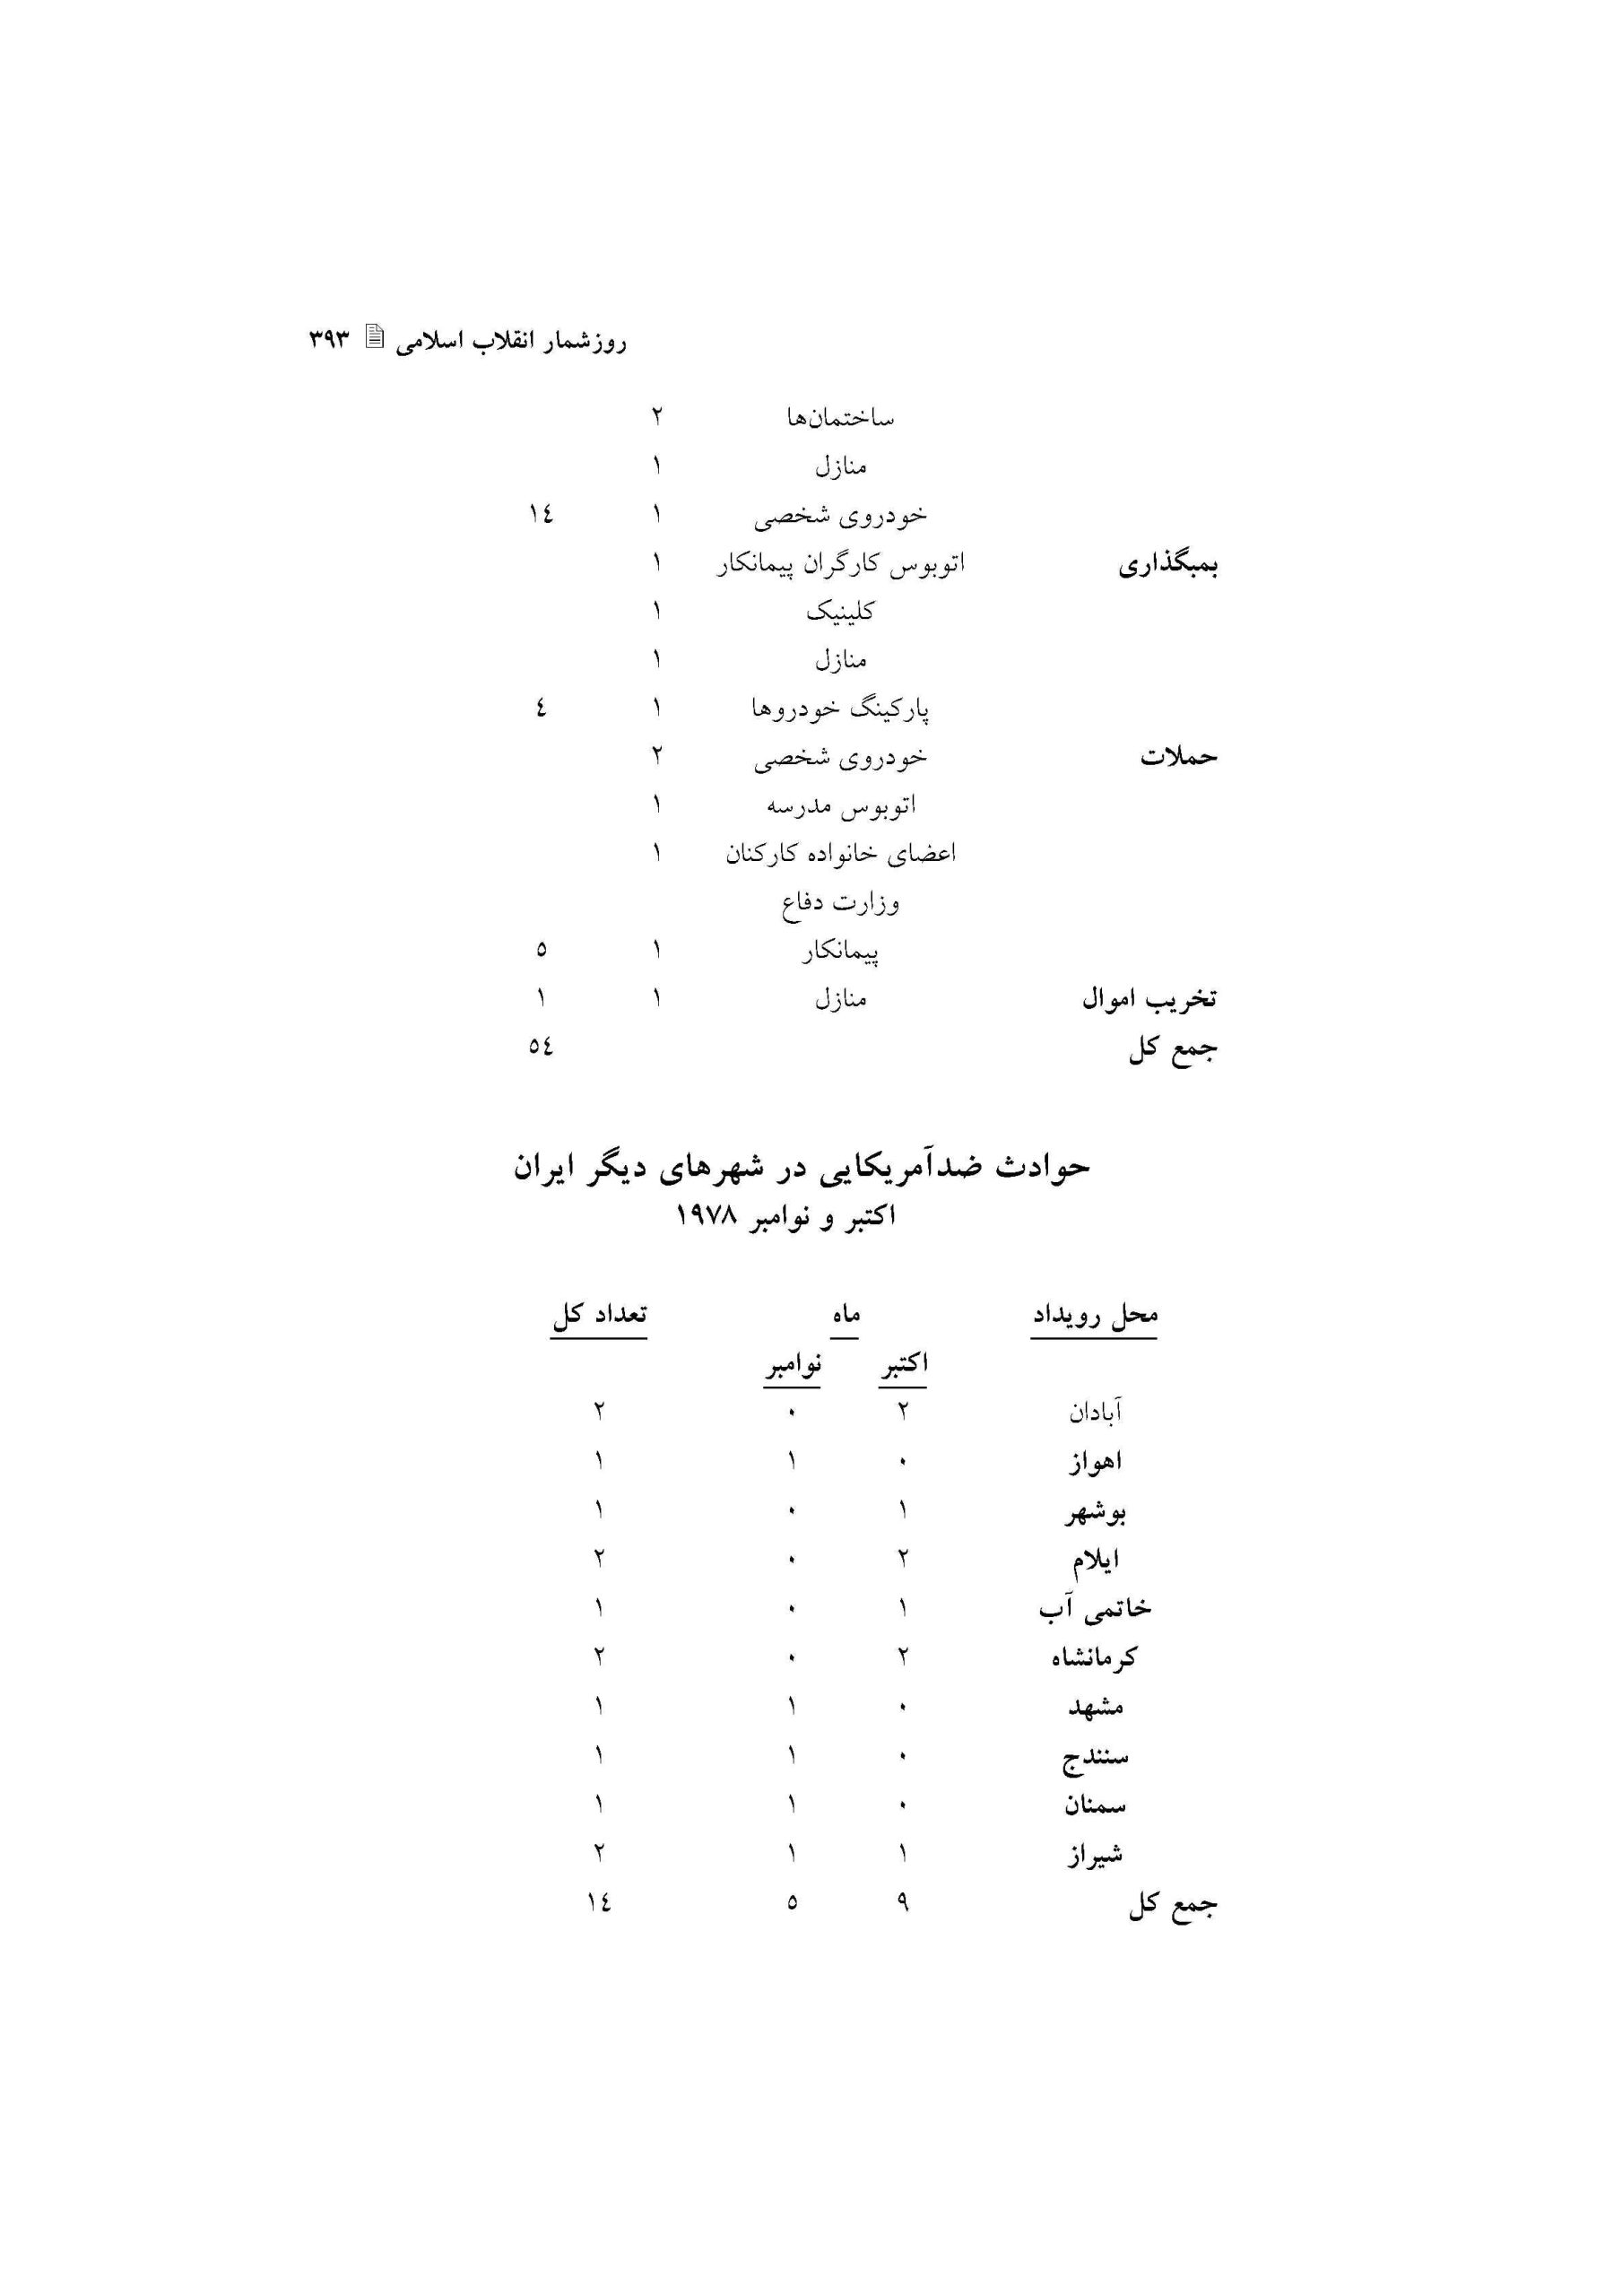 روزشمار انقلاب اسلامی ۳۹۳
ساختمان‌ها ۲
منازل ۱
خودروی شخصی ۱ ۱٤
بمبگذاری اتوبوس کارگران پیمانکار ۱
کلینیک ۱
منازل ۱
پارکینگ خودروها ۱ ٤
حملات خودروی شخصی ۲
اتوبوس مدرسه ۱
اعضای خانواده کارکنان ۱
وزارت دفاع
پیمانکار ۱ ٥
تخریب اموال منازل ۱ ۱
جمع کل ٥٤
حوادث ضدآمریکایی در شهرهای دیگر ایران
اکتبر و نوامبر ۱۹۷۸
محل رویداد ماه تعداد کل
اکتبر نوامبر
آبادان ۲ ۰ ۲
اهواز ۰ ۱ ۱
بوشهر ۱ ۰ ۱
ایلام ۲ ۰ ۲
خاتمی آب ۱ ۰ ۱
کرمانشاه ۲ ۰ ۲
مشهد ۰ ۱ ۱
سنندج ۰ ۱ ۱
سمنان ۰ ۱ ۱
شیراز ۱ ۱ ۲
جمع کل ۹ ٥ ۱٤